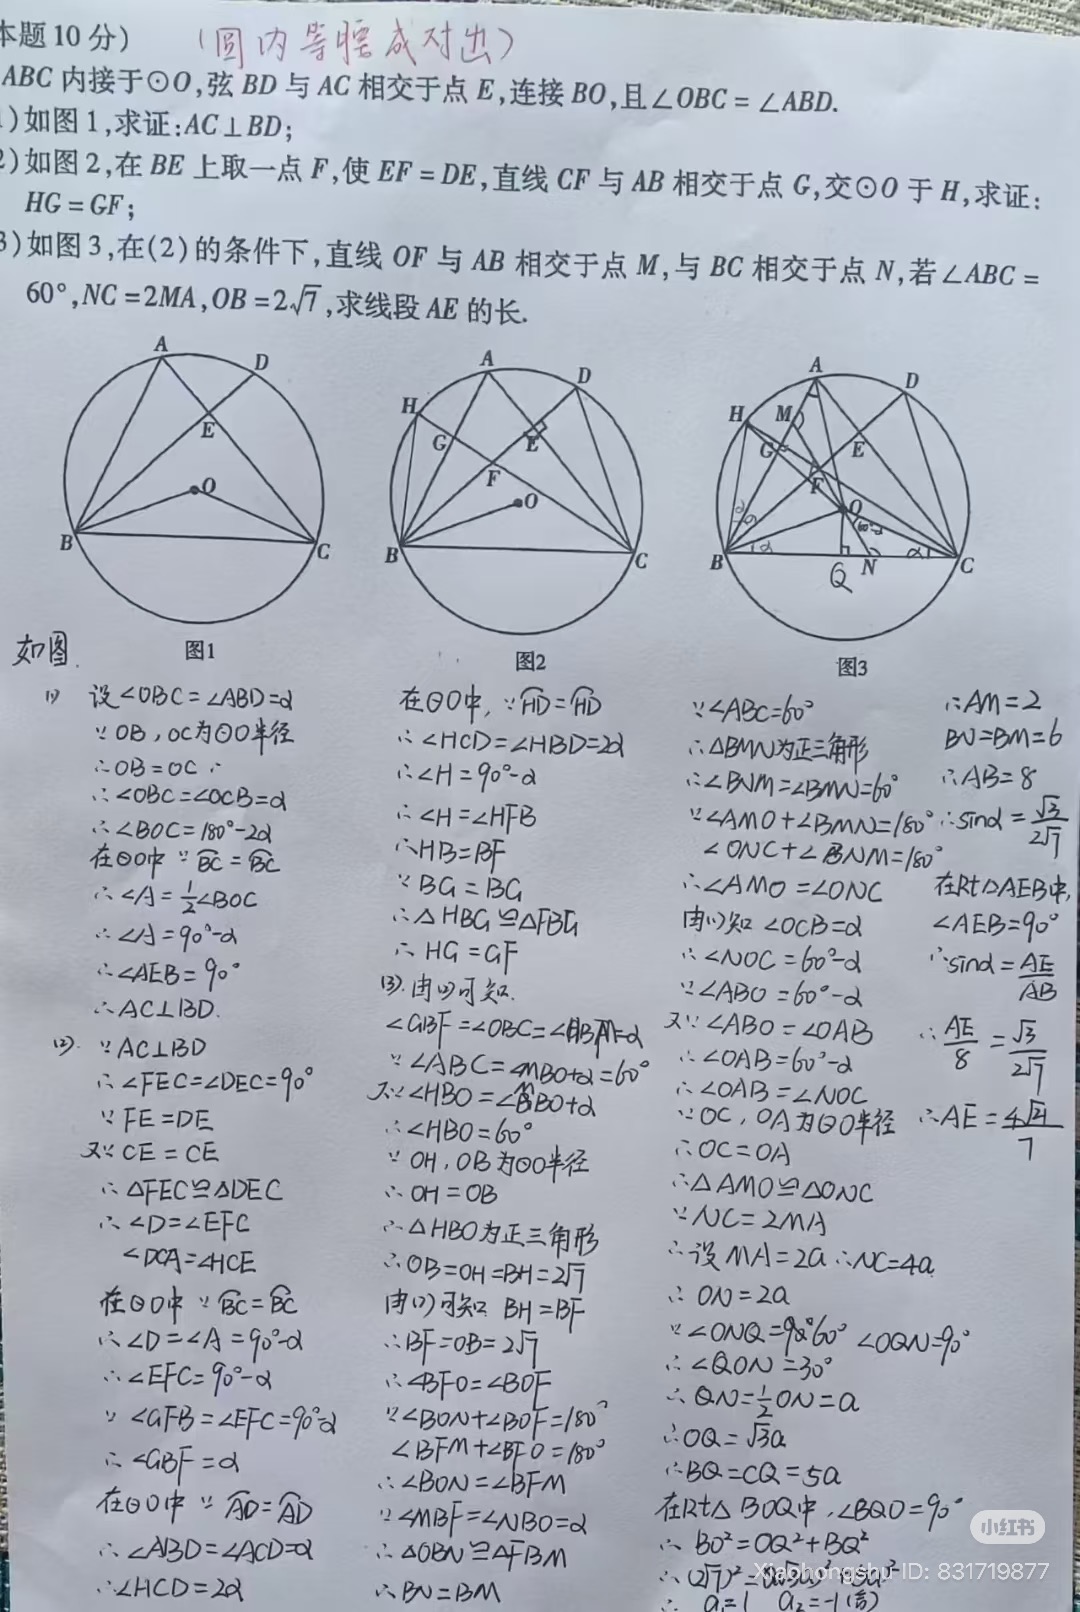 本题10分)
(圆内等腰成对出)
ABC内接于⊙O,弦BD与AC相交于点E,连接BO,且∠OBC=∠ABD.
1)如图1,求证:AC⊥BD;
2)如图2,在BE上取一点F,使EF=DE,直线CF与AB相交于点G,交⊙O于H,求证:
HG=GF;
3)如图3,在(2)的条件下,直线OF与AB相交于点M,与BC相交于点N,若∠ABC=
60°,NC=2MA,OB=2√7,求线段AE的长.
A
D
E
O
B
C
图1
A
D
H
G
E
F
O
B
C
图2
A
D
H
M
G
E
F
O
B
Q
N
C
图3
如图
(1) 设∠OBC=∠ABD=α
∵OB,OC为⊙O半径
∴OB=OC
∴∠OBC=∠OCB=α
∴∠BOC=180°-2α
在⊙O中 ∵BC=BC
∴∠A=1/2∠BOC
∴∠A=90°-α
∴∠AEB=90°
∴AC⊥BD.
(2). ∵AC⊥BD
∴∠FEC=∠DEC=90°
∵FE=DE
又∵CE=CE
∴△FEC≌△DEC
∴∠D=∠EFC
∠DCA=∠HCE
在⊙O中 ∵BC=BC
∴∠D=∠A=90°-α
∴∠EFC=90°-α
∵∠GFB=∠EFC=90°-α
∴∠GBF=α
在⊙O中 ∵AD=AD
∴∠ABD=∠ACD=α
∴∠HCD=2α
在⊙O中,∵HD=HD
∴∠HCD=∠HBD=2α
∴∠H=90°-α
∴∠H=∠HFB
∴HB=BF
∵BG=BG
∴△HBG≌△FBG
∴HG=GF
(3).由(1)可知.
∠GBF=∠OBC=∠HBM=α
∵∠ABC=∠MBO+α=60°
又∵∠HBO=∠MBO+α
∴∠HBO=60°
∵OH,OB为⊙O半径
∴OH=OB
∴△HBO为正三角形
∴OB=OH=BH=2√7
由(1)可知 BH=BF
∴BF=OB=2√7
∴∠BFO=∠BOF
∵∠BON+∠BOF=180°
∠BFM+∠BFO=180°
∴∠BON=∠BFM
∵∠MBF=∠NBO=α
∴△OBN≌△FBM
∴BN=BM
∵∠ABC=60°
∴△BMN为正三角形
∴∠BNM=∠BMN=60°
∵∠AMO+∠BMN=180°
∠ONC+∠BNM=180°
∴∠AMO=∠ONC
由(1)知 ∠OCB=α
∴∠NOC=60°-α
∵∠ABO=60°-α
又∵∠ABO=∠OAB
∴∠OAB=60°-α
∴∠OAB=∠NOC
∵OC,OA为⊙O半径
∴OC=OA
∴△AMO≌△ONC
∵NC=2MA
∴设MA=2a ∴NC=4a
∴ON=2a
∵∠ONQ=60° ∠OQN=90°
∴∠QON=30°
∴QN=1/2ON=a
∴OQ=√3a
∴BQ=CQ=5a
在Rt△BOQ中,∠BQO=90°
∴BO²=OQ²+BQ²
∴(2√7)²=(√3a)²+(5a)²
∴a₁=1 a₂=-1(舍)
∴AM=2
BN=BM=6
∴AB=8
∴sinα=√3/2√7
在Rt△AEB中,
∠AEB=90°
∴sinα=AE/AB
∴AE/8=√3/2√7
∴AE=4√21/7
小红书
Xiaohongshu ID: 831719877